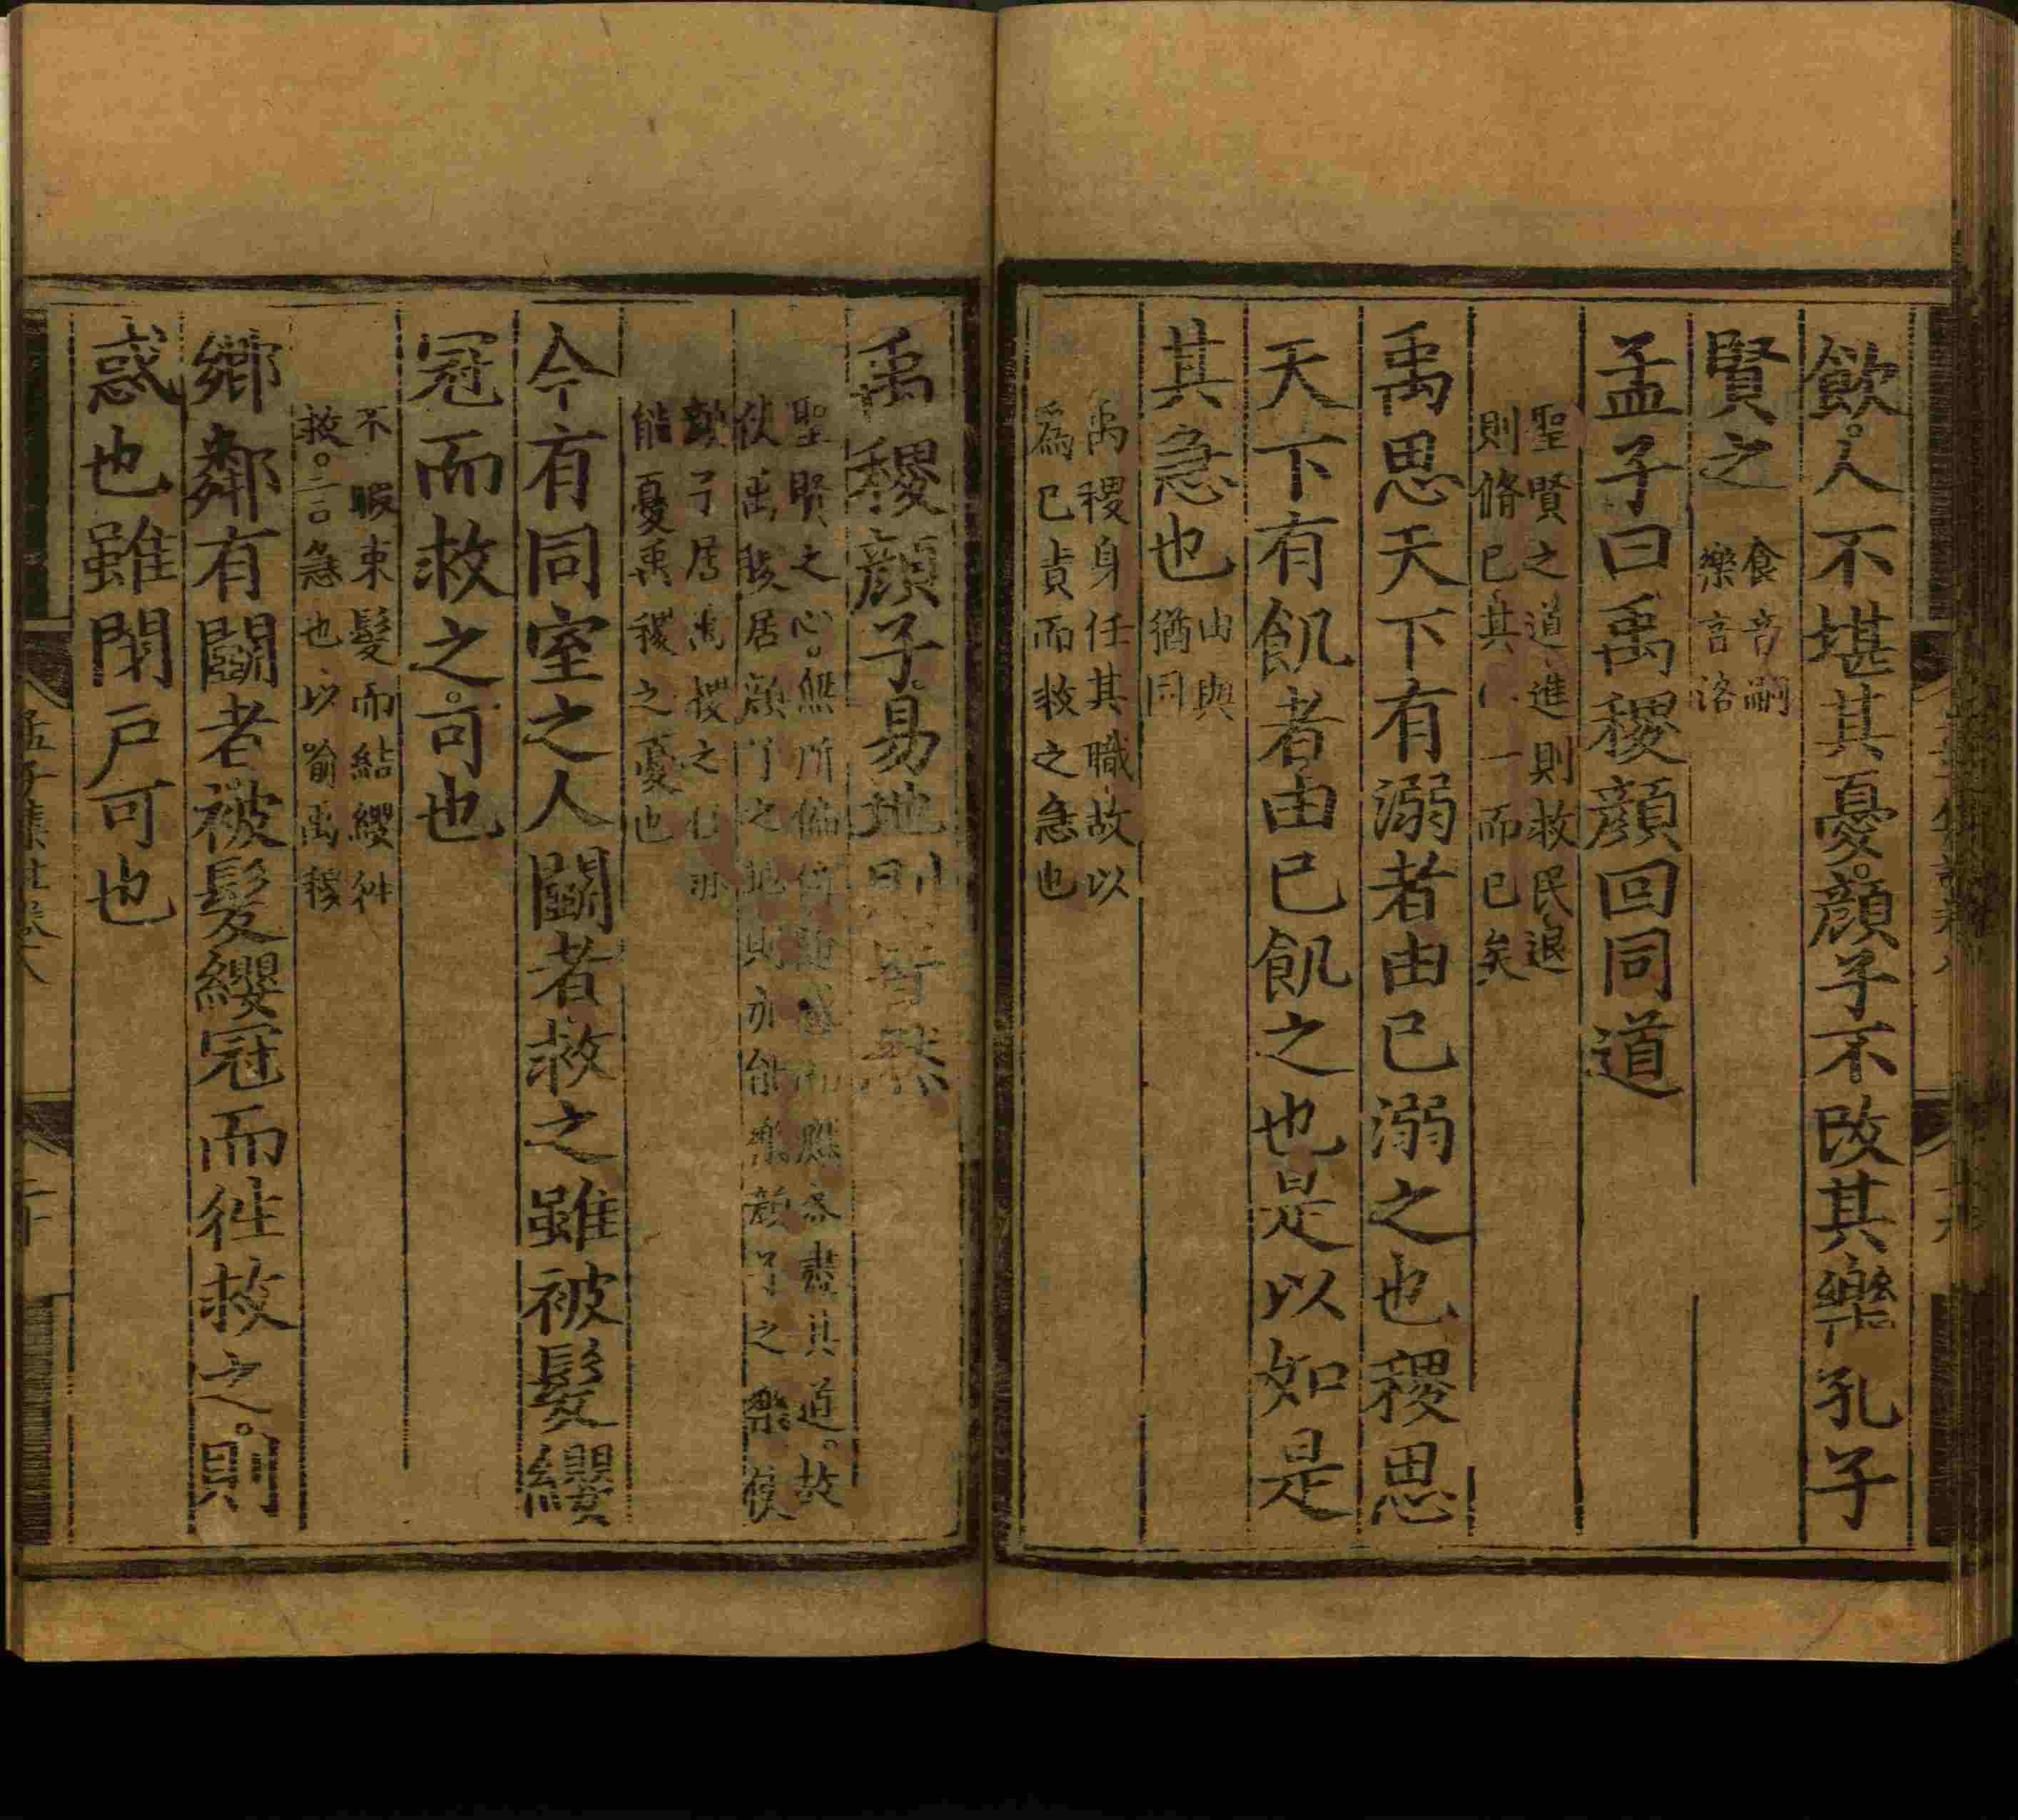 飲。人不堪其憂。顔子不改其樂孔子
賢之
食音嗣
樂音洛
孟子曰禹稷顔回同道
聖賢之道進則救民退
則脩己其心一而已矣
禹思天下有溺者由己溺之也稷思
天下有飢者由己飢之也是以如是
其急也
由與
猶同
禹稷身任其職故以
爲己責而救之急也
禹稷顔子。易地則皆然
聖賢之心。無所偏倚隨感而應各盡其道。故
使禹稷居顔子之地則亦能樂顔子之樂使
顔子居禹稷之任亦
能憂禹稷之憂也
今有同室之人鬭者救之雖被髮纓
冠而救之。可也
不暇束髮而結纓徃
救。言急也以喻禹稷
鄉鄰有鬭者被髮纓冠而徃救之。則
惑也雖閉戸可也
孟子集註卷八
二十